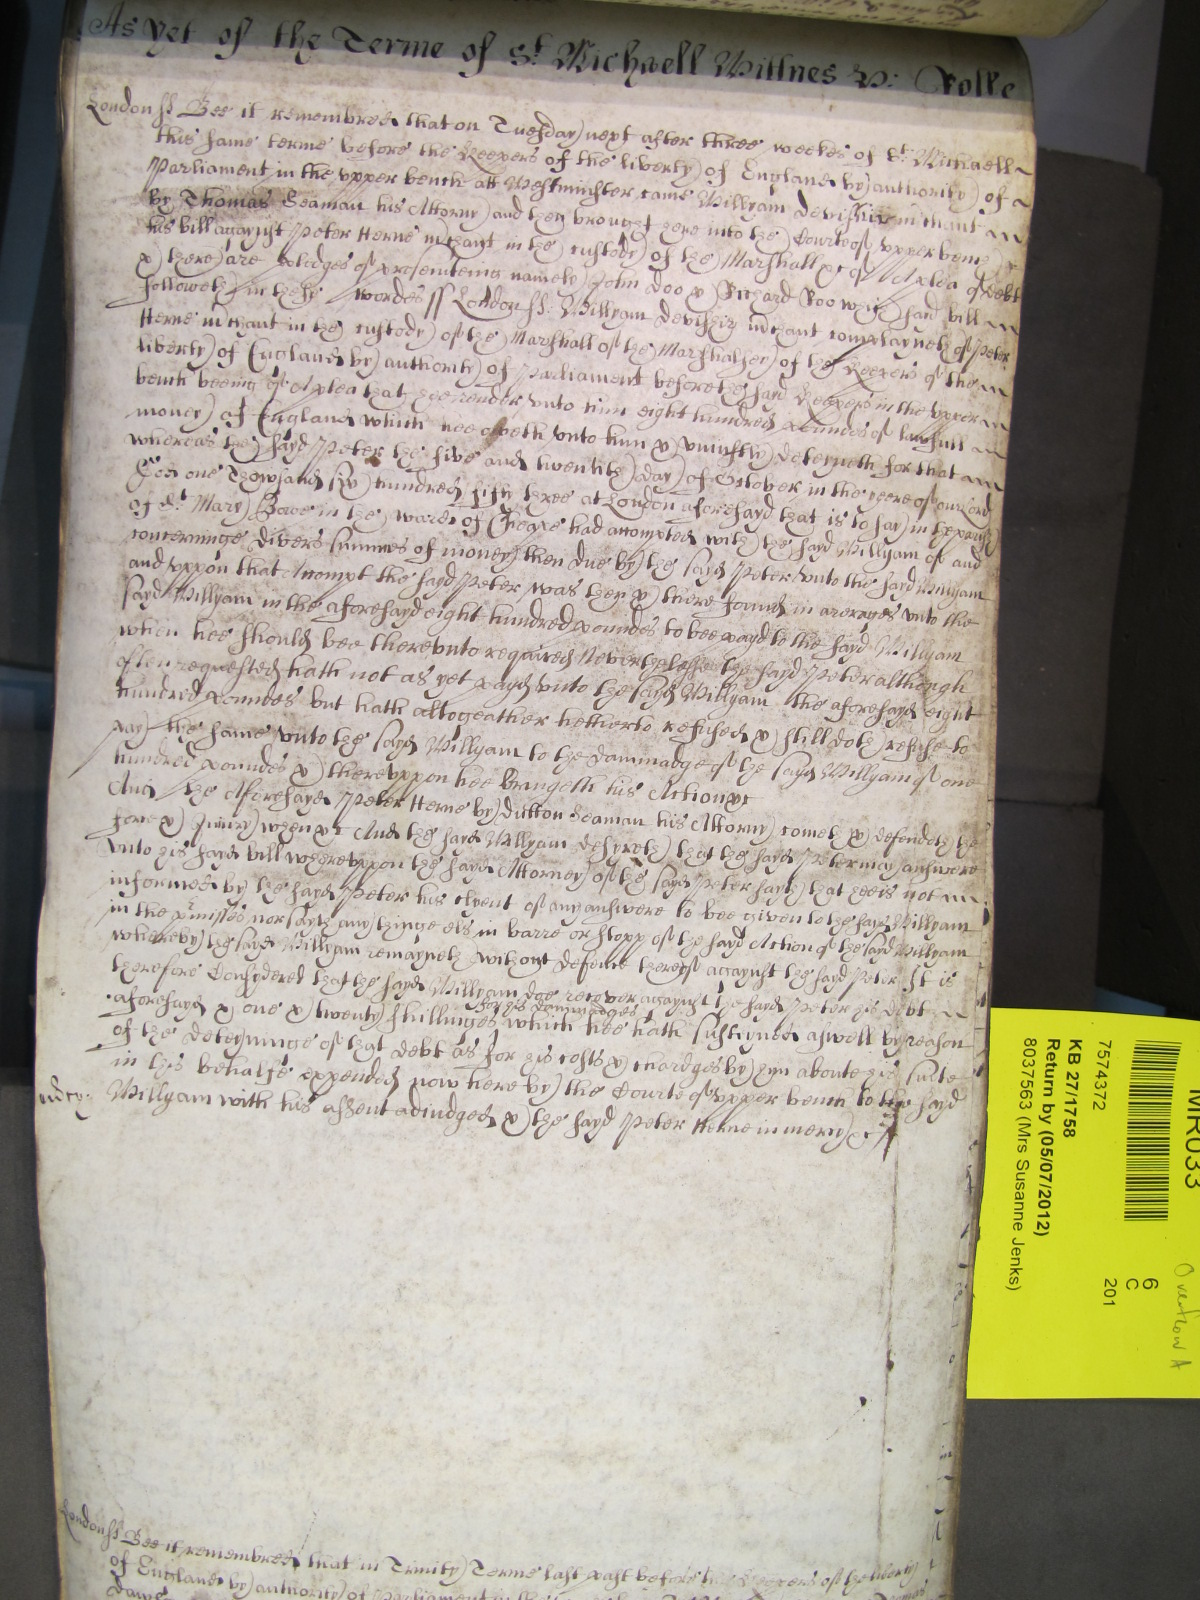 As yet of the Terme of St Michaell Wittnes H: Rolle
London ss Bee it remembred that on Tuesday next after three weekes of St Michaell
this same terme before the Keepers of the liberty of England by authority of
Parliament in the upper bench att Westminster came Willyam Devishir mchant
by Thomas Seaman his Attorny and then brought here into the Courte of upper bench
his bill agaynst Peter Herne mchant in the custody of the Marshall &c of A plea of debt
& there are pledges of prosecuteing namely John Doo & Richard Roo which sayd bill
followeth in these wordes ss London ss. Willyam Devishir mchant complayneth of Peter
Herne mchant in the custody of the Marshall of the Marshalsey of the Keepers of the
liberty of England by authority of Parliament before the sayd Keepers in the upper
bench beeing of A plea that hee render unto him eight hundred poundes of lawfull
money of England which hee oweth unto him & uniustly deteyneth for that
whereas the sayd Peter the five and twentith day of October in the yeere of our Lord
God one Thowsand six hundred fifty three at London aforesayd that is to say in the parish
of St Mary Bowe in the ward of Cheape had attompted with the sayd Willyam of and
concerninge divers summes of money then due by the sayd Peter unto the sayd Willyam
and uppon that Attompt the sayd Peter was then & there found in arerages unto the
sayd Willyam in the aforesayd eight hundred poundes to bee payd to the sayd Willyam
when hee should bee thereunto required Neverthelesse the sayd Peter although
often requested hath not as yet payd unto the sayd Willyam the aforesayd eight
hundred poundes but hath altogeather hetherto refused & still doth refuse to
pay the same unto the sayd Willyam to the dammadge of the sayd Willyam of one
hundred poundes & thereuppon hee Bringeth his Action &c
And the aforesayd Peter Herne by Dutton Seaman his Attorny cometh & defendeth the
force & Iniury when &c And the sayd Willyam desyreth that the sayd Peter may answere
unto his sayd bill whereuppon the sayd Attorney of the sayd Peter sayth that hee is not
informed by the sayd Peter his clyent of any answere to bee given to the sayd Willyam
in the pmisses nor sayth any thinge els in barre or stopp of the sayd Action of the sayd Willyam
whereby the sayd Willyam remayneth without defence thereof agaynst the sayd Peter It is
therefore Considered that the sayd Willyam doe recover agaynst the sayd Peter his debt
for his dammadges
aforesayd & one & twenty shillinges which hee hath susteyned aswell by reason
of the deteyninge of that debt as for his costs & chardges by him aboute his suite
in this behalfe expended now here by the Courte of upper bench to the sayd
mercy: Willyam with his assent adiudged & the sayd Peter Herne in mercy &c
London ss Bee it remembred that in Trinity Terme last past before the Keepers of the liberty
of England by authority of Parliament in the
MR033
7574372
KB 27/1758
Return by (05/07/2012)
8037563 (Mrs Susanne Jenks)
6
C
201
Overflow A